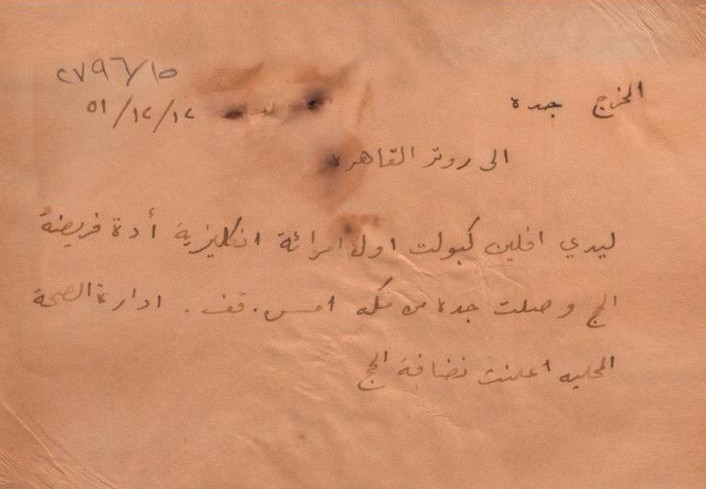 ٢٧٩٦/١٥
المخرج جدة
٥١/١٢/١٢
الى روتر القاهره
ليدي افلين كبولت اول امرائة انكليزية أدة فريضة
الحج وصلت جدة من مكه امس. قف. ادارة الصحة
المحليه اعلنت نضافة الحج